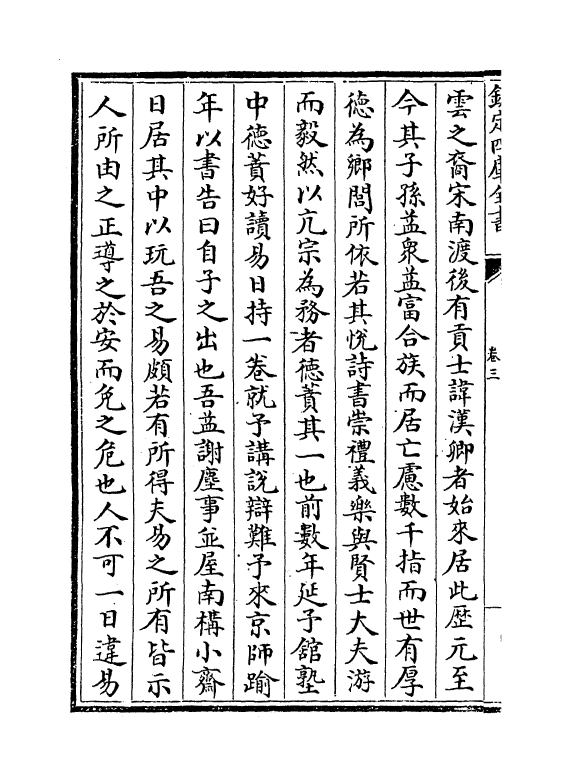 欽定四庫全書
卷三
雲之裔宋南渡後有貢士諱漢卿者始來居此歴元至
今其子孫益衆益富合族而居亡慮數千指而世有厚
德為鄉閭所依若其悅詩書崇禮義樂與賢士大夫游
而毅然以亢宗為務者德蕡其一也前數年延予館塾
中德蕡好讀易日持一卷就予講說辯難予來京師踰
年以書告曰自子之出也吾益謝塵事並屋南構小齋
日居其中以玩吾之易頗若有所得夫易之所有皆示
人所由之正導之於安而免之危也人不可一日違易